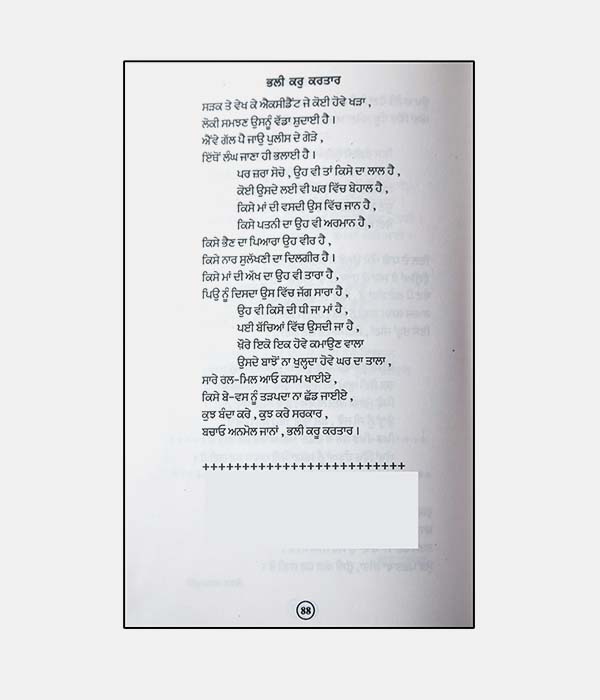 ਭਲੀ ਕਰੁ ਕਰਤਾਰ
ਸੜਕ ਤੇ ਵੇਖ ਕੇ ਐਕਸੀਡੈਂਟ ਜੇ ਕੋਈ ਹੋਵੇ ਖੜਾ ,
ਲੋਕੀ ਸਮਝਣ ਉਸਨੂੰ ਵੱਡਾ ਸ਼ੁਦਾਈ ਹੈ ।
ਐਂਵੇ ਗੱਲ ਪੈ ਜਾਊ ਪੁਲੀਸ ਦੇ ਗੇੜੇ ,
ਇੱਥੋਂ ਲੰਘ ਜਾਣਾ ਹੀ ਭਲਾਈ ਹੈ ।
ਪਰ ਜ਼ਰਾ ਸੋਚੋ , ਉਹ ਵੀ ਤਾਂ ਕਿਸੇ ਦਾ ਲਾਲ ਹੈ ,
ਕੋਈ ਉਸਦੇ ਲਈ ਵੀ ਘਰ ਵਿੱਚ ਬੇਹਾਲ ਹੈ ,
ਕਿਸੇ ਮਾਂ ਦੀ ਵਸਦੀ ਉਸ ਵਿੱਚ ਜਾਨ ਹੈ ,
ਕਿਸੇ ਪਤਨੀ ਦਾ ਉਹ ਵੀ ਅਰਮਾਨ ਹੈ ,
ਕਿਸੇ ਭੈਣ ਦਾ ਪਿਆਰਾ ਉਹ ਵੀਰ ਹੈ ,
ਕਿਸੇ ਨਾਰ ਸੁਲੱਖਣੀ ਦਾ ਦਿਲਗੀਰ ਹੈ ।
ਕਿਸੇ ਮਾਂ ਦੀ ਅੱਖ ਦਾ ਉਹ ਵੀ ਤਾਰਾ ਹੈ ,
ਪਿਉ ਨੂੰ ਦਿਸਦਾ ਉਸ ਵਿੱਚ ਜੱਗ ਸਾਰਾ ਹੈ ,
ਉਹ ਵੀ ਕਿਸੇ ਦੀ ਧੀ ਜਾ ਮਾਂ ਹੈ ,
ਪਈ ਬੱਚਿਆਂ ਵਿੱਚ ਉਸਦੀ ਜਾ ਹੈ ,
ਖੌਰੇ ਇਕੋ ਇਕ ਹੋਵੇ ਕਮਾਉਣ ਵਾਲਾ
ਉਸਦੇ ਬਾਝੋਂ ਨਾ ਖੁਲ੍ਹਦਾ ਹੋਵੇ ਘਰ ਦਾ ਤਾਲਾ ,
ਸਾਰੇ ਰਲ-ਮਿਲ ਆਓ ਕਸਮ ਖਾਈਏ ,
ਕਿਸੇ ਬੇ-ਵਸ ਨੂੰ ਤੜਪਦਾ ਨਾ ਛੱਡ ਜਾਈਏ ,
ਕੁਝ ਬੰਦਾ ਕਰੇ , ਕੁਝ ਕਰੇ ਸਰਕਾਰ ,
ਬਚਾਓ ਅਨਮੋਲ ਜਾਨਾਂ , ਭਲੀ ਕਰੂ ਕਰਤਾਰ ।
+++++++++++++++++++++++++
88